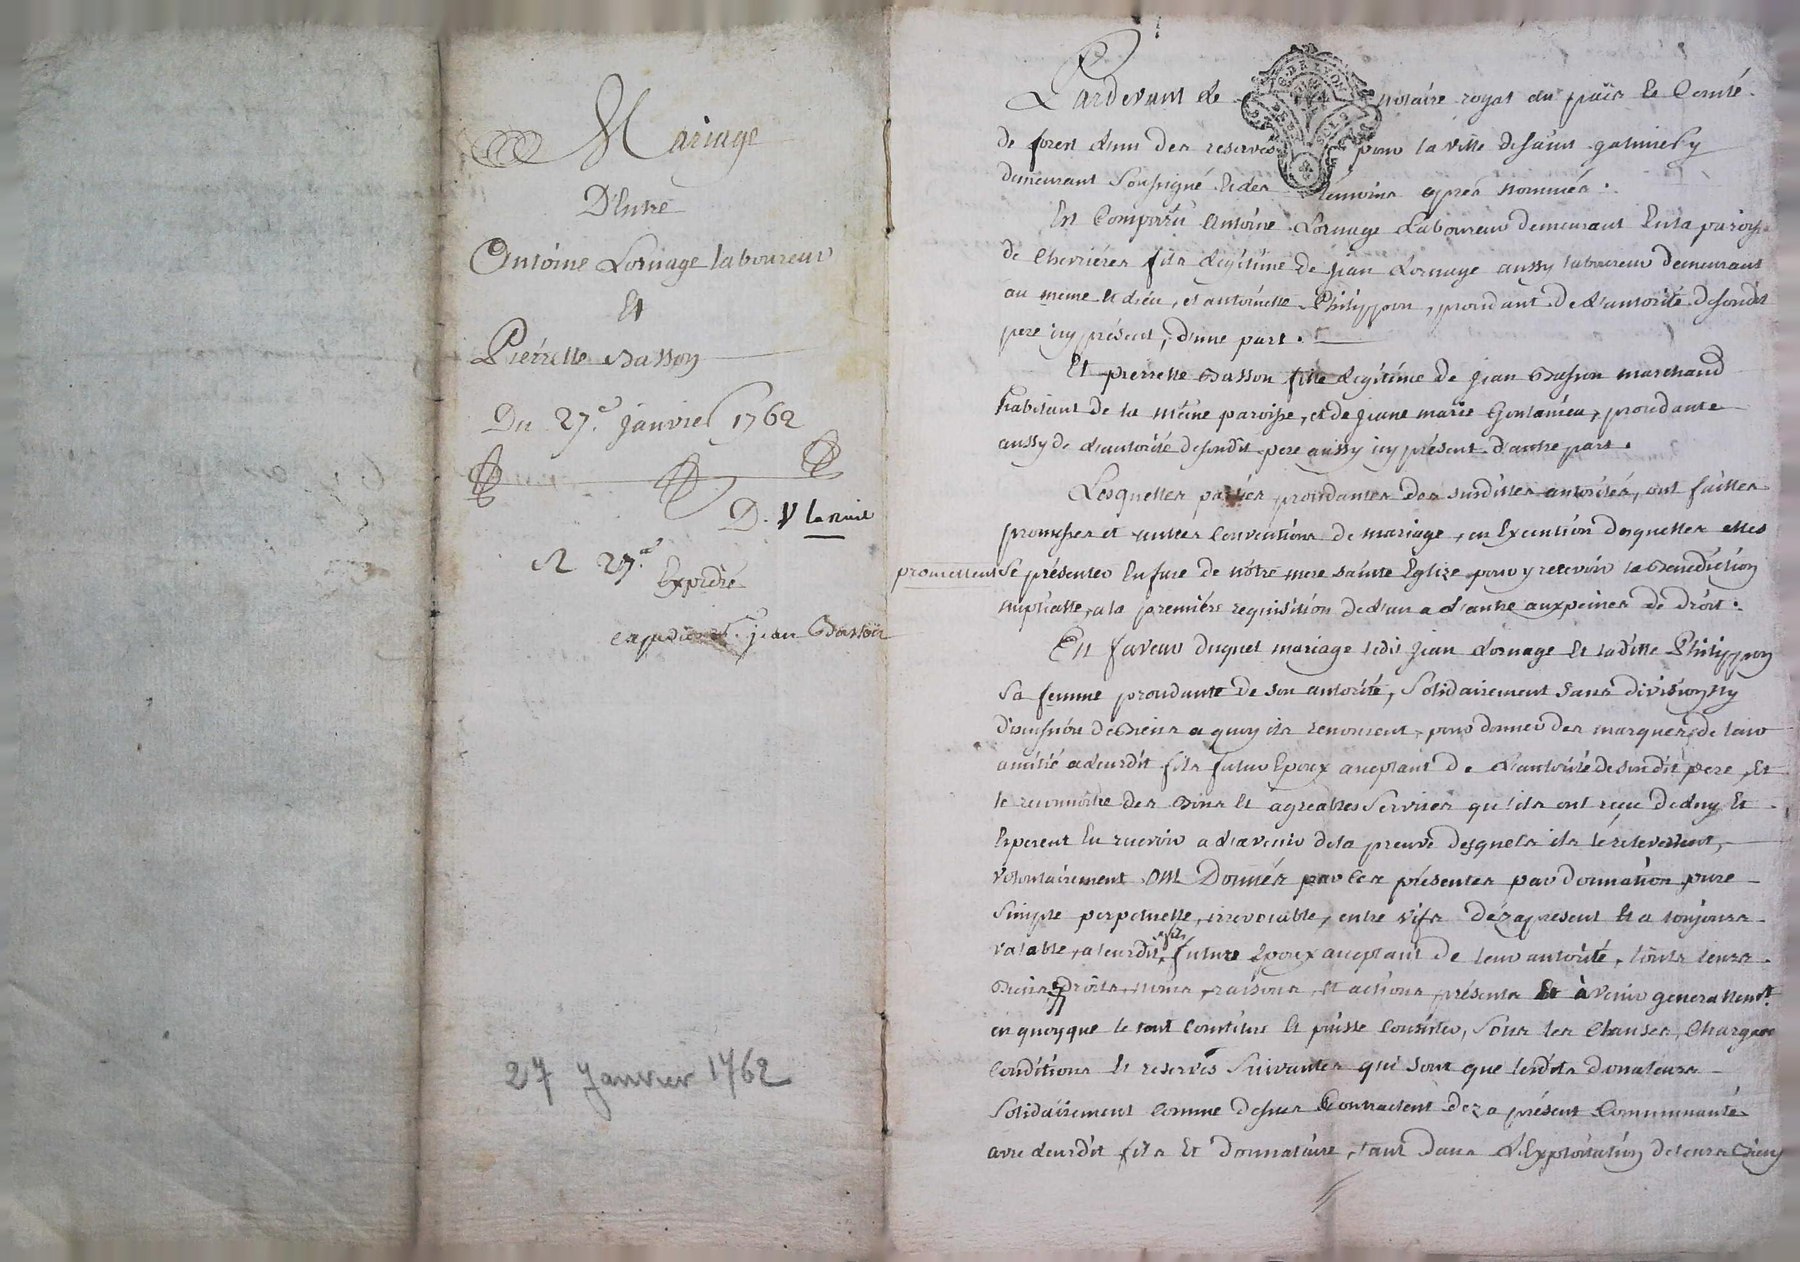 Mariage
D'Entre
Antoine Lornage laboureur
Et
Pierrette Basson
Du 27.e janvier 1762
D. V la nuit
R 27.e
Expedié
expedié jean Basson
27 Janvier 1762
Pardevant le notaire royal du païs et Comté
de forest l'un des reservés pour la ville de saint galmier y
demeurant soussigné et des témoins après nommés.
Est Comparu Antoine Lornage Laboureur demeurant en la paroisse
de Chevrieres fils légitime de jean Lornage aussy laboureur demeurant
au meme et dieu, et antoinette Philippon, procedant de l'autorité desondit
pere icy présent, d'une part.
Et pierrette Basson fille légitime de jean Basson marchand
habitant de la même paroisse, et de jeane marie, procedante
aussy de l'autorité desondit pere aussy icy présent d'autre part.
Lesquelles parties procedantes des susdittes autorités, ont faittes
promesses et autres Conventions de mariage, en Execution desquelles elles
promettent se présenter En face de nôtre mere sainte Eglize pour y recevoir la Benediction
nuptialle, a la premiére requisition de l'un a l'autre aux peines de droit.
En faveur duquel mariage ledit jean Lornage et laditte Philippon
sa femme procedante de son autorité, solidairement sans division ny
discussion de Biens a quoy ils renoncent, pour donner des marques de leur
amitié a leurdit fils futur Epoux acceptant de l'autorité desondit pere, Et
le reconnoitre des Bons et agreables services qu'ils ont reçu de luy Et
Esperent En recevoir a l'avenir de la preuve desquels ils le relevent,
volontairement ont Donnés par les présentes par donnation pure
simple perpetuelle, irrevocable, entre vifs dézapresent Et a toujours
valable, a leurdit fils future Epoux acceptant de leur autorité, touts leurs
Biens, Droits, noms, raisons, et actions, présents Et à venir generallemt.
en quoy que le tout Consiste et puisse Consister, sous les Clauses, Charges
Conditions et reserves suivantes qui sont que lesdits donateurs
solidairement Comme dessus Contractent dez a présent Communauté
avec leurdit fils Et donnataire, tant dans l'Exploitation de leurs Biens